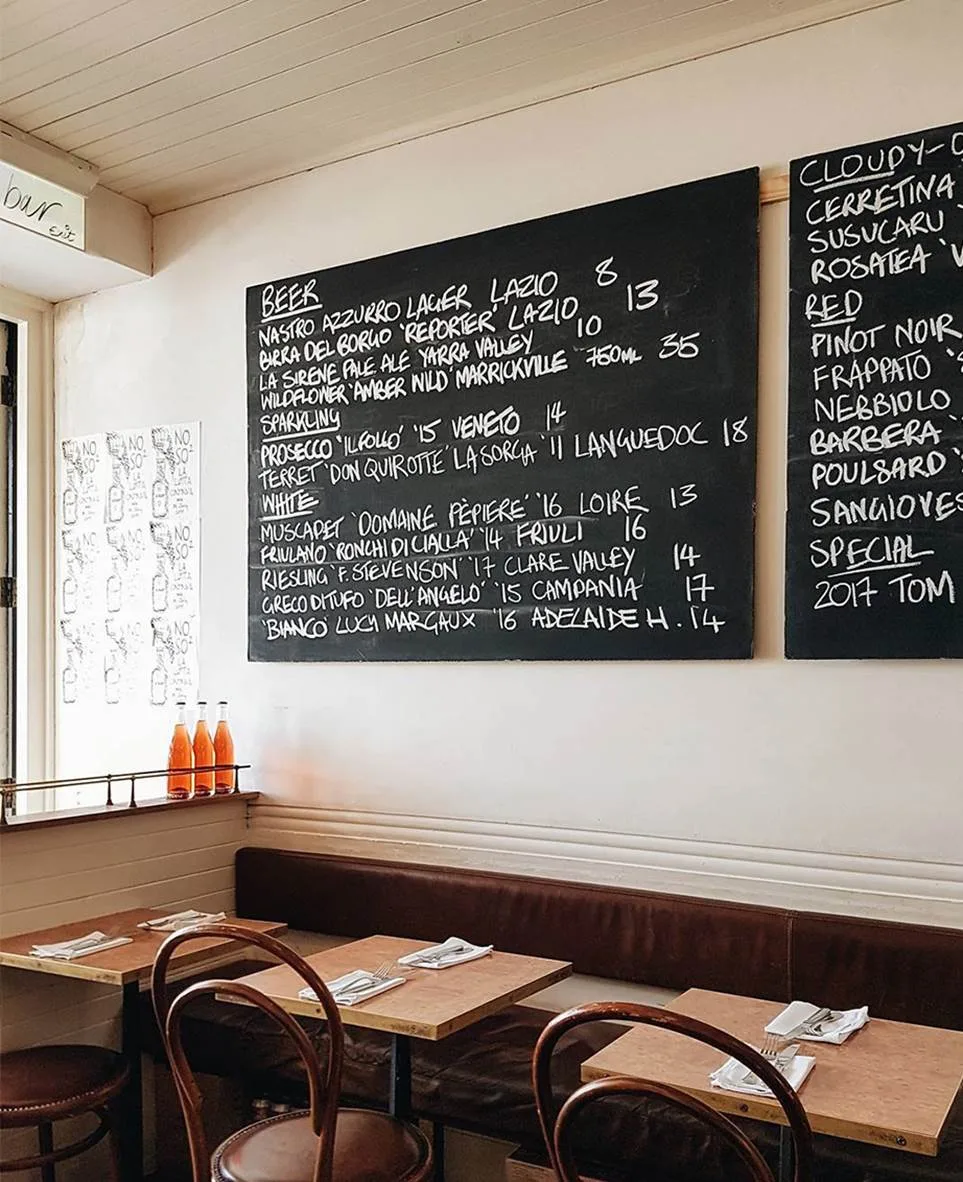 bar
exit
BEER
NASTRO AZZURRO LAGER LAZIO 8
BIRRA DEL BORGO 'REPORTER' LAZIO 13
LA SIRENE PALE ALE YARRA VALLEY 10
WILDFLOWER 'AMBER WILD' MARRICKVILLE 750ML 35
SPARKLING
PROSECCO 'IL FOLLO' '15 VENETO 14
TERRET 'DON QUIROTTE' LA SORGA '11 LANGUEDOC 18
WHITE
MUSCADET 'DOMAINE PÈPIERE' '16 LOIRE 13
FRIULANO 'RONCHI DI CIALLA' '14 FRIULI 16
RIESLING 'F. STEVENSON' '17 CLARE VALLEY 14
GRECO DI TUFO 'DELL'ANGELO' '15 CAMPANIA 17
'BIANCO' LUCY MARGAUX '16 ADELAIDE H. 14
CLOUDY-
CERRETINA
SUSUCARU
ROSATEA
RED
PINOT NOIR
FRAPPATO
NEBBIOLO
BARBERA
POULSARD
SANGIOVES
SPECIAL
2017 TOM